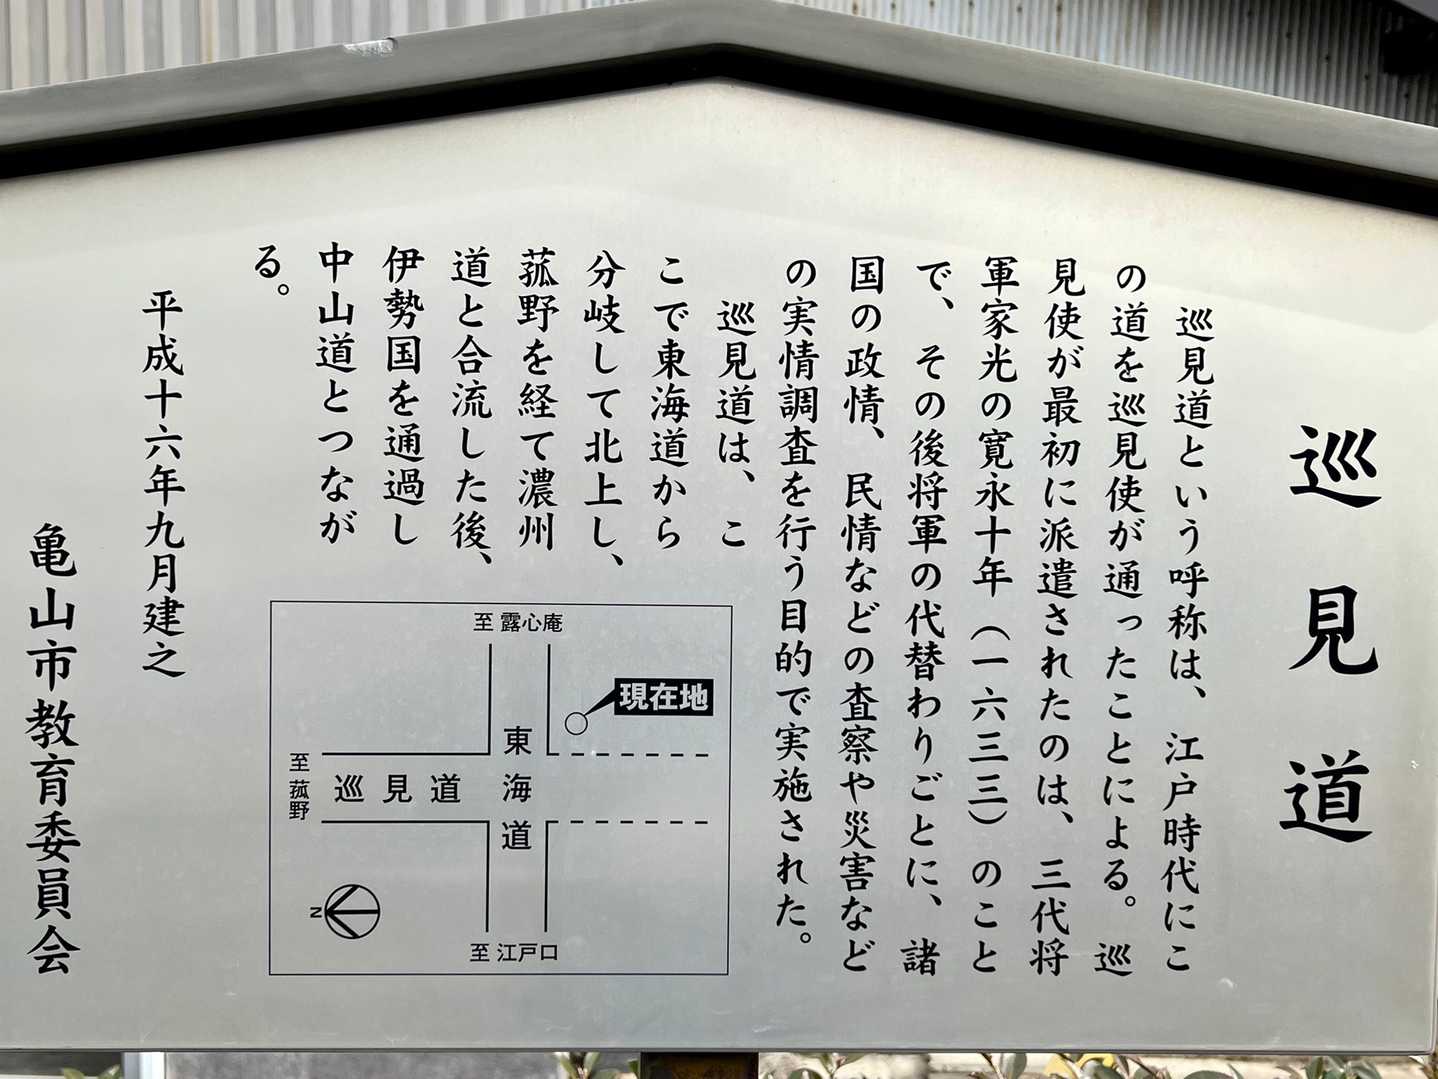 巡見道
巡見道という呼称は、江戸時代にこ
の道を巡見使が通ったことによる。巡
見使が最初に派遣されたのは、三代将
軍家光の寛永十年（一六三三）のこと
で、その後将軍の代替わりごとに、諸
国の政情、民情などの査察や災害など
の実情調査を行う目的で実施された。
巡見道は、こ
こで東海道から
分岐して北上し、
菰野を経て濃州
道と合流した後、
伊勢国を通過し
中山道とつなが
る。
至 露心庵
現在地
東海道
巡見道
至 菰野
N
至 江戸口
平成十六年九月建之
亀山市教育委員会